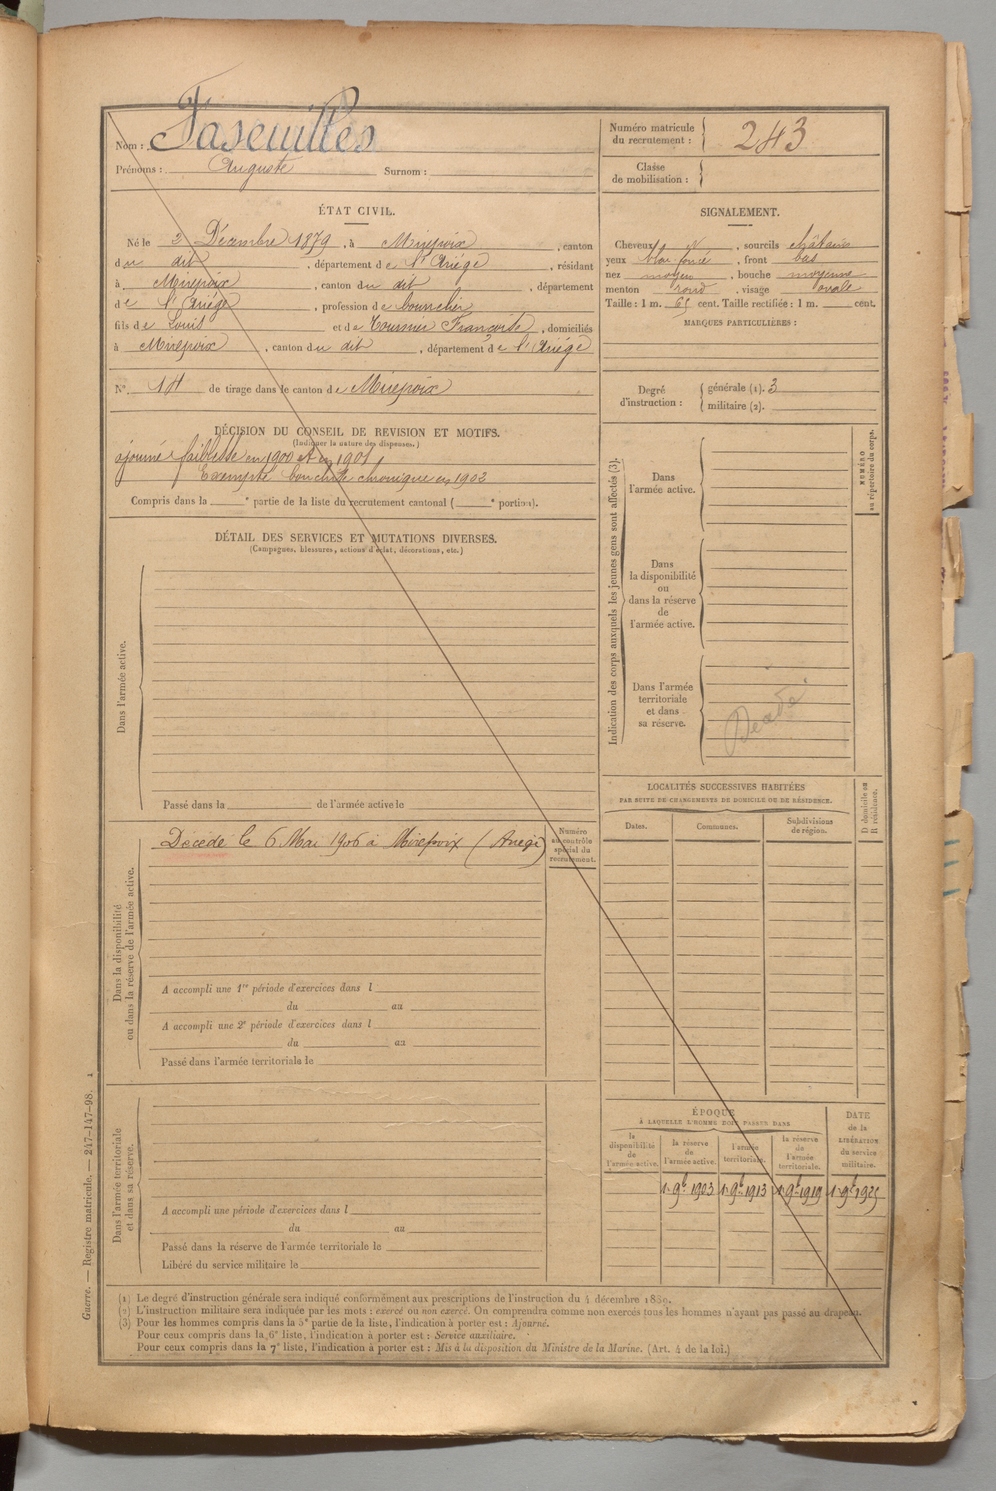 Nom : Faseuilles
Prénoms : Auguste Surnom :
Numéro matricule du recrutement : 243
Classe de mobilisation :
ÉTAT CIVIL.
Né le 2 Décembre 1879, à Mirepoix, canton
du dit, département de l'Ariége, résidant
à Mirepoix, canton du dit, département
de l'Ariége, profession de boucher
fils de Louis et de Tournier Françoise, domiciliés
à Mirepoix, canton du dit, département de l'Ariége
N° 14 de tirage dans le canton de Mirepoix
DÉCISION DU CONSEIL DE REVISION ET MOTIFS.
(Indiquer la nature des dispenses.)
ajourné faiblesse en 1900 et en 1901,
Exempté bronchite chronique en 1902
Compris dans la e partie de la liste du recrutement cantonal ( e portion).
SIGNALEMENT.
Cheveux et, sourcils châtain
yeux foncé, front bas
nez moyen, bouche moyenne
menton rond, visage ovale
Taille : 1 m. 65 cent. Taille rectifiée : 1 m. cent.
MARQUES PARTICULIÈRES :
Degré d'instruction : générale (1). 3
militaire (2).
DÉTAIL DES SERVICES ET MUTATIONS DIVERSES.
(Campagnes, blessures, actions d'éclat, décorations, etc.)
Dans l'armée active.
Passé dans la de l'armée active le
Dans la disponibilité
ou dans la réserve de l'armée active.
Décédé le 6 Mai 1906 à Mirepoix (Ariège)
Numéro
au contrôle
spécial du
recrutement.
A accompli une 1re période d'exercices dans l
du au
A accompli une 2e période d'exercices dans l
du au
Passé dans l'armée territoriale le
Dans l'armée territoriale
et dans sa réserve.
A accompli une période d'exercices dans l
du au
Passé dans la réserve de l'armée territoriale le
Libéré du service militaire le
Indication des corps auxquels les jeunes gens sont affectés (3).
NUMÉRO
au répertoire du corps.
Dans
l'armée active.
Dans
la disponibilité
ou
dans la réserve
de
l'armée active.
Dans l'armée
territoriale
et dans
sa réserve.
LOCALITÉS SUCCESSIVES HABITÉES
PAR SUITE DE CHANGEMENTS DE DOMICILE OU DE RÉSIDENCE.
Dates. Communes. Subdivisions de région.
D domicile ou
R résidence.
ÉPOQUE
À LAQUELLE L'HOMME DOIT PASSER DANS
la disponibilité de l'armée active.
la réserve de l'armée active.
l'armée territoriale.
la réserve de l'armée territoriale.
DATE de la LIBÉRATION du service militaire.
1er 9bre 1903 1er 9bre 1913 1er 9bre 1919 1er 9bre 1925
(1) Le degré d'instruction générale sera indiqué conformément aux prescriptions de l'instruction du 4 décembre 1889.
(2) L'instruction militaire sera indiquée par les mots : exercé ou non exercé. On comprendra comme non exercés tous les hommes n'ayant pas passé au drapeau.
(3) Pour les hommes compris dans la 5e partie de la liste, l'indication à porter est : Ajourné.
Pour ceux compris dans la 6e liste, l'indication à porter est : Service auxiliaire.
Pour ceux compris dans la 7e liste, l'indication à porter est : Mis à la disposition du Ministre de la Marine. (Art. 4 de la loi.)
Guerre. — Registre matricule. — 247-147-98. 1